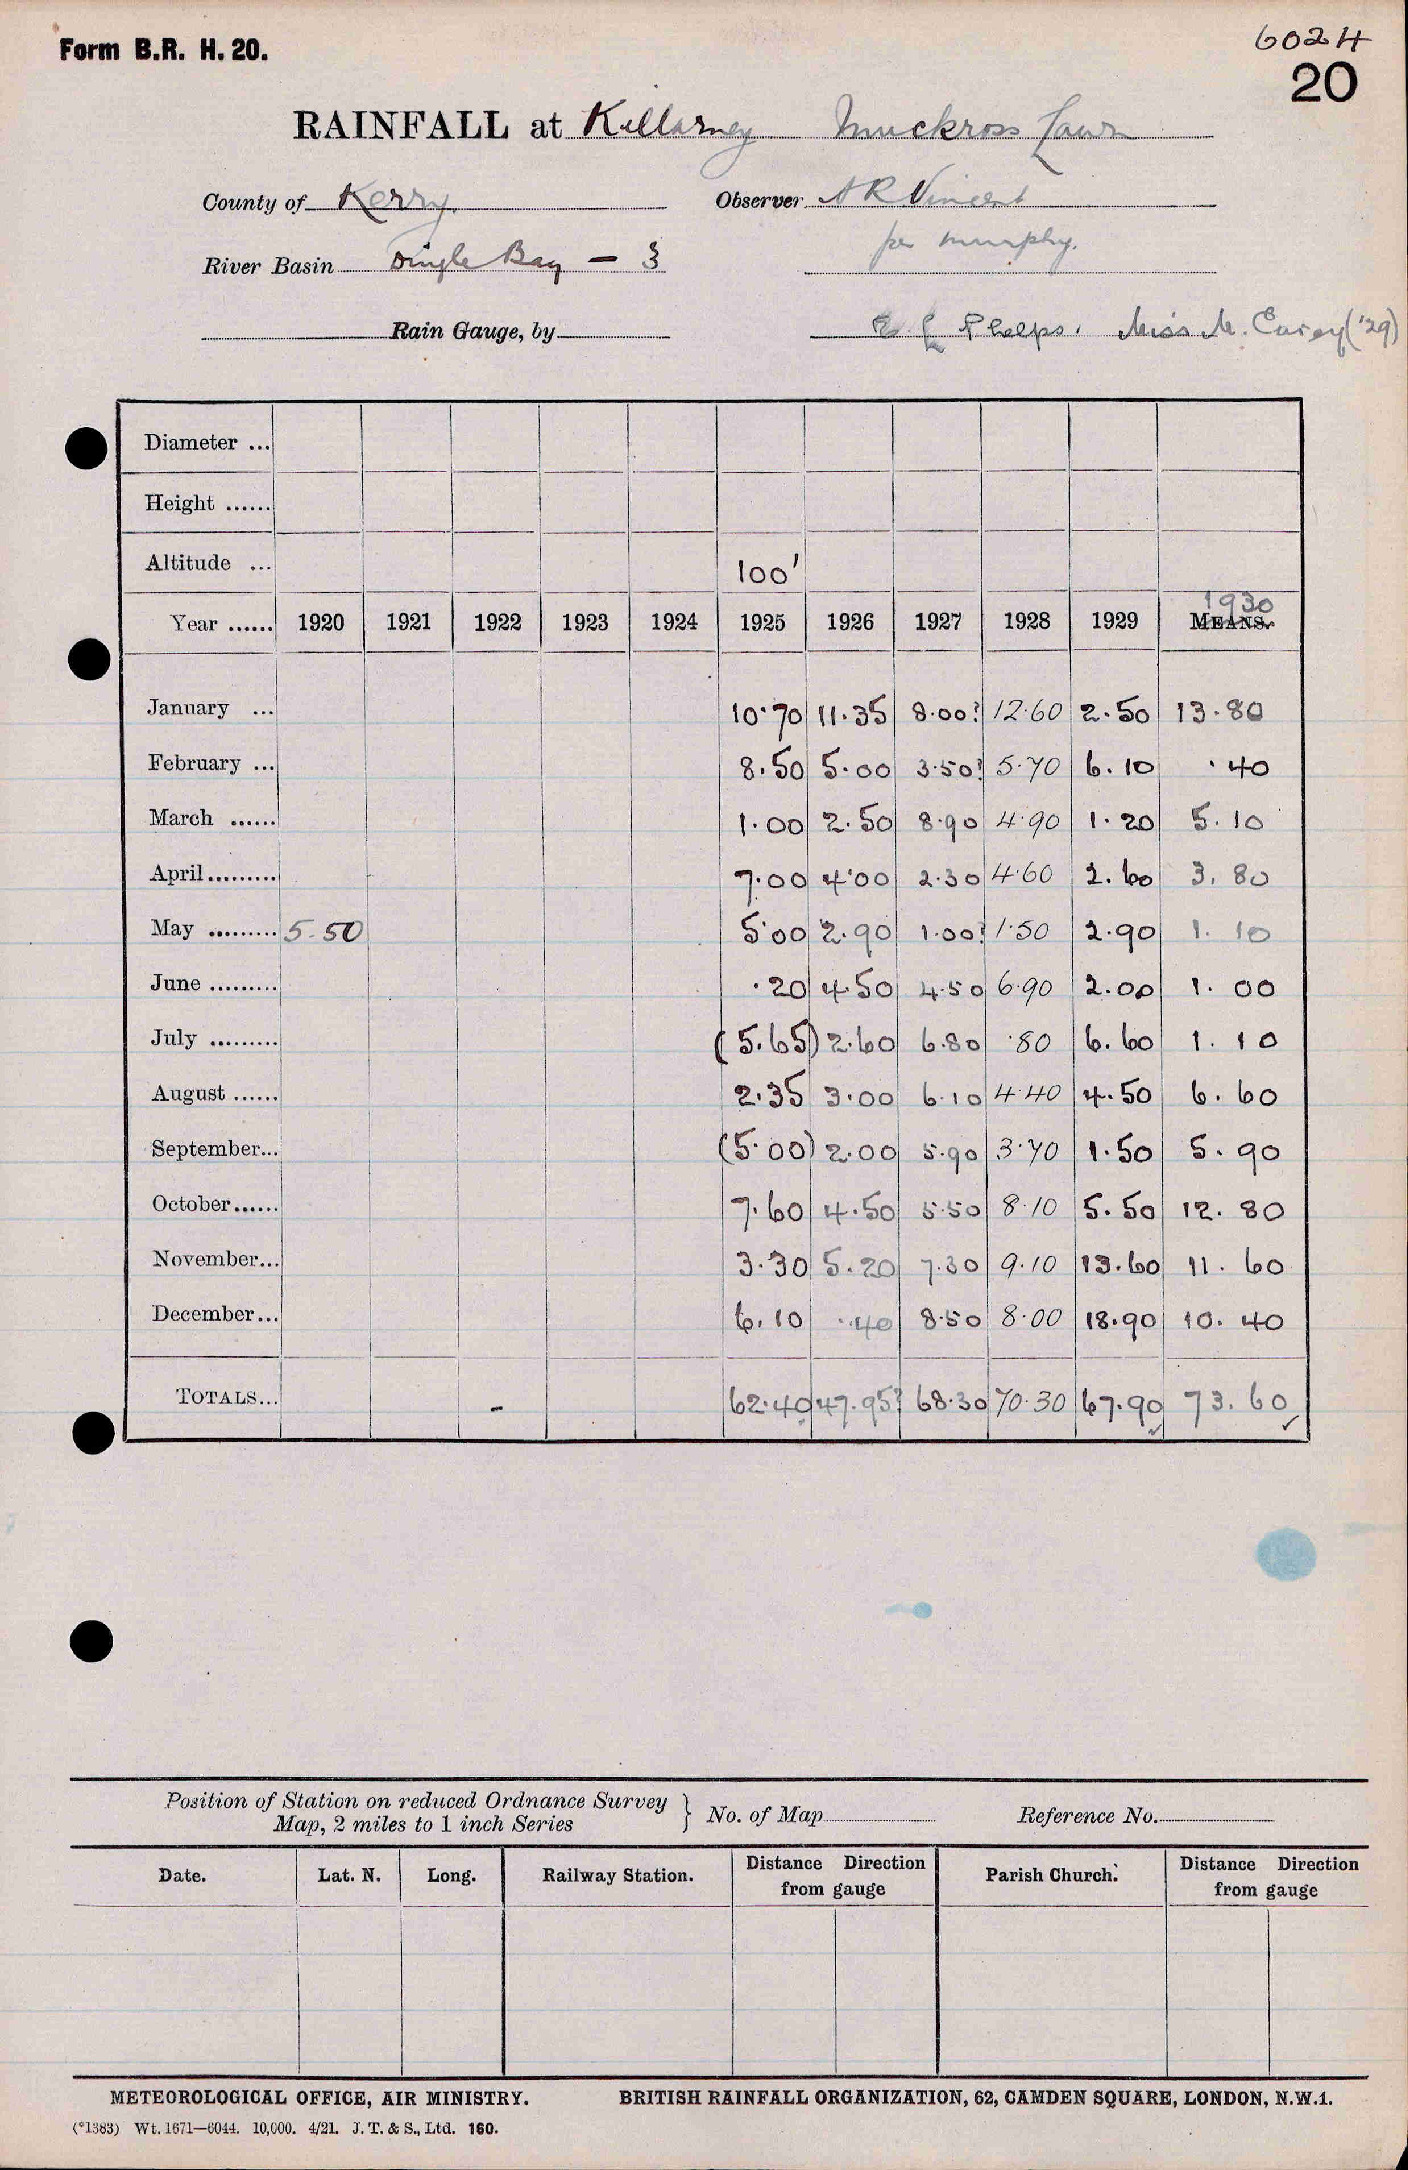 Form B.R. H. 20.
6024
20
RAINFALL at Killarney Muckross Lawn
County of Kerry. Observer A R Vincent
per Murphy.
River Basin Dingle Bay — 3
Rain Gauge, by Phelps. Miss M. Carey ('29)
Diameter ...
Height ......
Altitude ... 100'
1930
Year ...... 1920 1921 1922 1923 1924 1925 1926 1927 1928 1929 MEANS.
January ... 10.70 11.35 8.00? 12.60 2.50 13.80
February ... 8.50 5.00 3.50? 5.70 6.10 .40
March ...... 1.00 2.50 8.90 4.90 1.20 5.10
April ......... 7.00 4.00 2.30 4.60 2.60 3.80
May ......... 5.50 5.00 2.90 1.00? 1.50 2.90 1.10
June ......... .20 4.50 4.50 6.90 2.00 1.00
July ......... (5.65) 2.60 6.80 .80 6.60 1.10
August ...... 2.35 3.00 6.10 4.40 4.50 6.60
September... (5.00) 2.00 5.90 3.70 1.50 5.90
October...... 7.60 4.50 5.50 8.10 5.50 12.80
November... 3.30 5.20 7.30 9.10 13.60 11.60
December... 6.10 .40 8.50 8.00 18.90 10.40
TOTALS... - 62.40 47.95? 68.30 70.30 67.90 ✓ 73.60 ✓
Position of Station on reduced Ordnance Survey
Map, 2 miles to 1 inch Series } No. of Map Reference No.
Date. Lat. N. Long. Railway Station. Distance Direction from gauge Parish Church. Distance Direction from gauge
METEOROLOGICAL OFFICE, AIR MINISTRY. BRITISH RAINFALL ORGANIZATION, 62, CAMDEN SQUARE, LONDON, N.W.1.
(*1383) Wt. 1671—6044. 10,000. 4/21. J. T. & S., Ltd. 160.